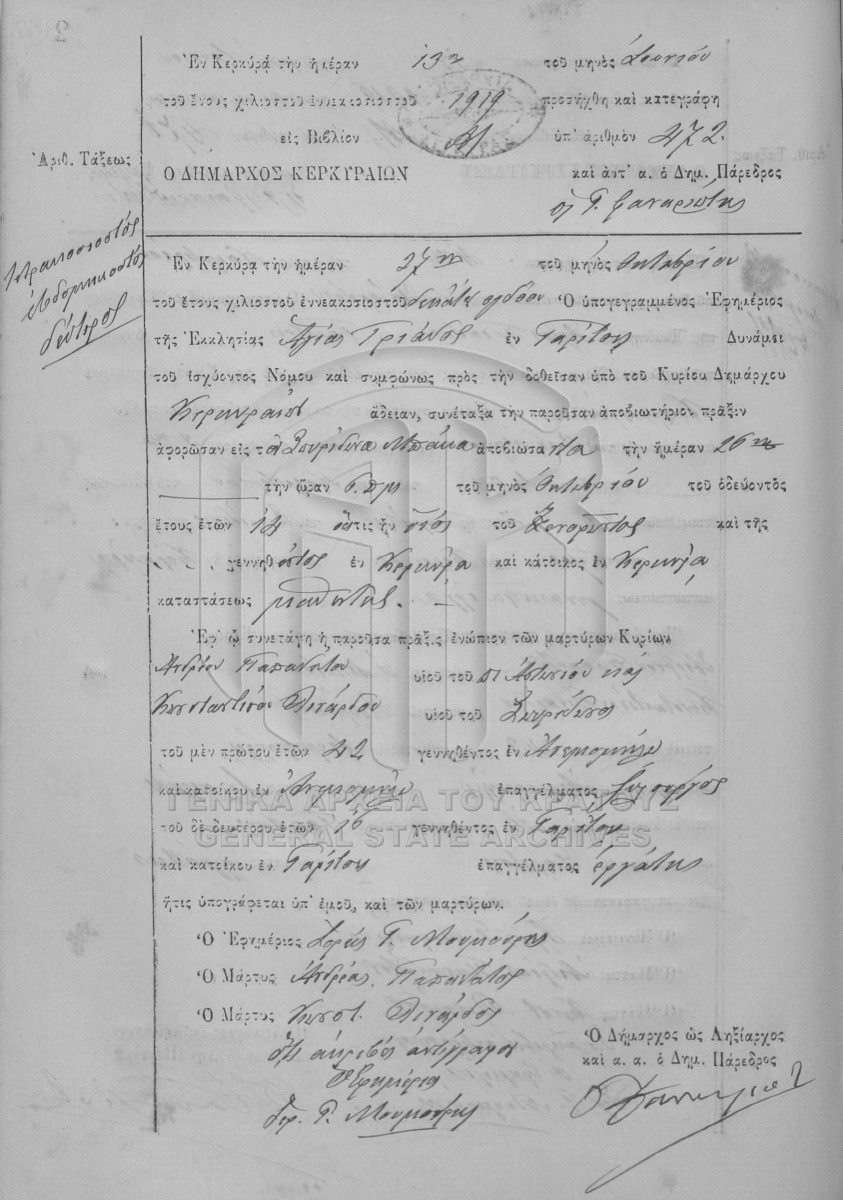 Ἐν Κερκύρᾳ τὴν ἡμέραν 13η τοῦ μηνὸς Ἰουνίου
τοῦ ἔτους χιλιοστοῦ ἐννεακοσιοστοῦ 1919 προσήχθη καὶ κατεγράφη
εἰς Βιβλίον ὑπ' ἀριθμὸν 472.
Ἀριθ. Τάξεως
Ο ΔΗΜΑΡΧΟΣ ΚΕΡΚΥΡΑΙΩΝ καὶ ἀντ' α. ὁ Δημ. Πάρεδρος
τετρακοσιοστός
ἑβδομηκοστός
δεύτερος
Ἐν Κερκύρᾳ τὴν ἡμέραν 27ην τοῦ μηνὸς Ὀκτωβρίου
τοῦ ἔτους χιλιοστοῦ ἐννεακοσιοστοῦ δεκάτου ὀγδόου Ὁ ὑπογεγραμμένος Ἐφημέριος
τῆς Ἐκκλησίας Ἁγίας Τριάδος ἐν Γαρίτσῃ Δυνάμει
τοῦ ἰσχύοντος Νόμου καὶ συμφώνως πρὸς τὴν δοθεῖσαν ὑπὸ τοῦ Κυρίου Δημάρχου
Κερκυραίων ἄδειαν, συνέταξα τὴν παροῦσαν ἀποβιωτήριον πρᾶξιν
ἀφορῶσαν εἰς τὸν Σπυρίδωνα Μπάκα ἀποβιώσαντα τὴν ἡμέραν 26ην
τὴν ὥραν 6 πμ τοῦ μηνὸς Ὀκτωβρίου τοῦ ὁδεύοντος
ἔτους ἐτῶν ὅστις ἦν υἱὸς τοῦ καὶ τῆς
γεννηθέντος ἐν Κερκύρᾳ καὶ κάτοικος ἐν Κερκύρᾳ
καταστάσεως μαθητής.
Ἐφ' ᾧ συνετάγη ἡ παροῦσα πρᾶξις ἐνώπιον τῶν μαρτύρων Κυρίων
Ἀνδρέου Παπανάτου υἱοῦ τοῦ
Κωνσταντίνου Λινάρδου υἱοῦ τοῦ Σπυρίδωνος
τοῦ μὲν πρώτου ἐτῶν 42 γεννηθέντος ἐν Ἀνεμομύλῳ
καὶ κατοίκου ἐν Ἀνεμομύλῳ ἐπαγγέλματος ξυλουργός
ΓΕΝΙΚΑ ΑΡΧΕΙΑ ΤΟΥ ΚΡΑΤΟΥΣ
τοῦ δὲ δευτέρου ἐτῶν γεννηθέντος ἐν Γαρίτσῃ
GENERAL STATE ARCHIVES
καὶ κατοίκου ἐν Γαρίτσῃ ἐπαγγέλματος ἐργάτης
ἥτις ὑπογράφεται ὑπ' ἐμοῦ, καὶ τῶν μαρτύρων.
Ὁ Ἐφημέριος
Ὁ Μάρτυς Ἀνδρέας Παπανάτος
Ὁ Μάρτυς Κωνστ. Λινάρδος
Ὅτι ἀκριβὲς ἀντίγραφον
Ὁ Ἐφημέριος
Ὁ Δήμαρχος ὡς Ληξίαρχος
καὶ α. α. ὁ Δημ. Πάρεδρος